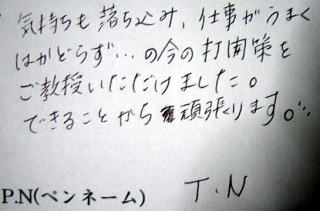 気持ちも落ち込み、仕事がうまく
はかどらず…の今の打開策を
ご教授いただけました。
できることから頑張ります。
P.N(ペンネーム) T.N